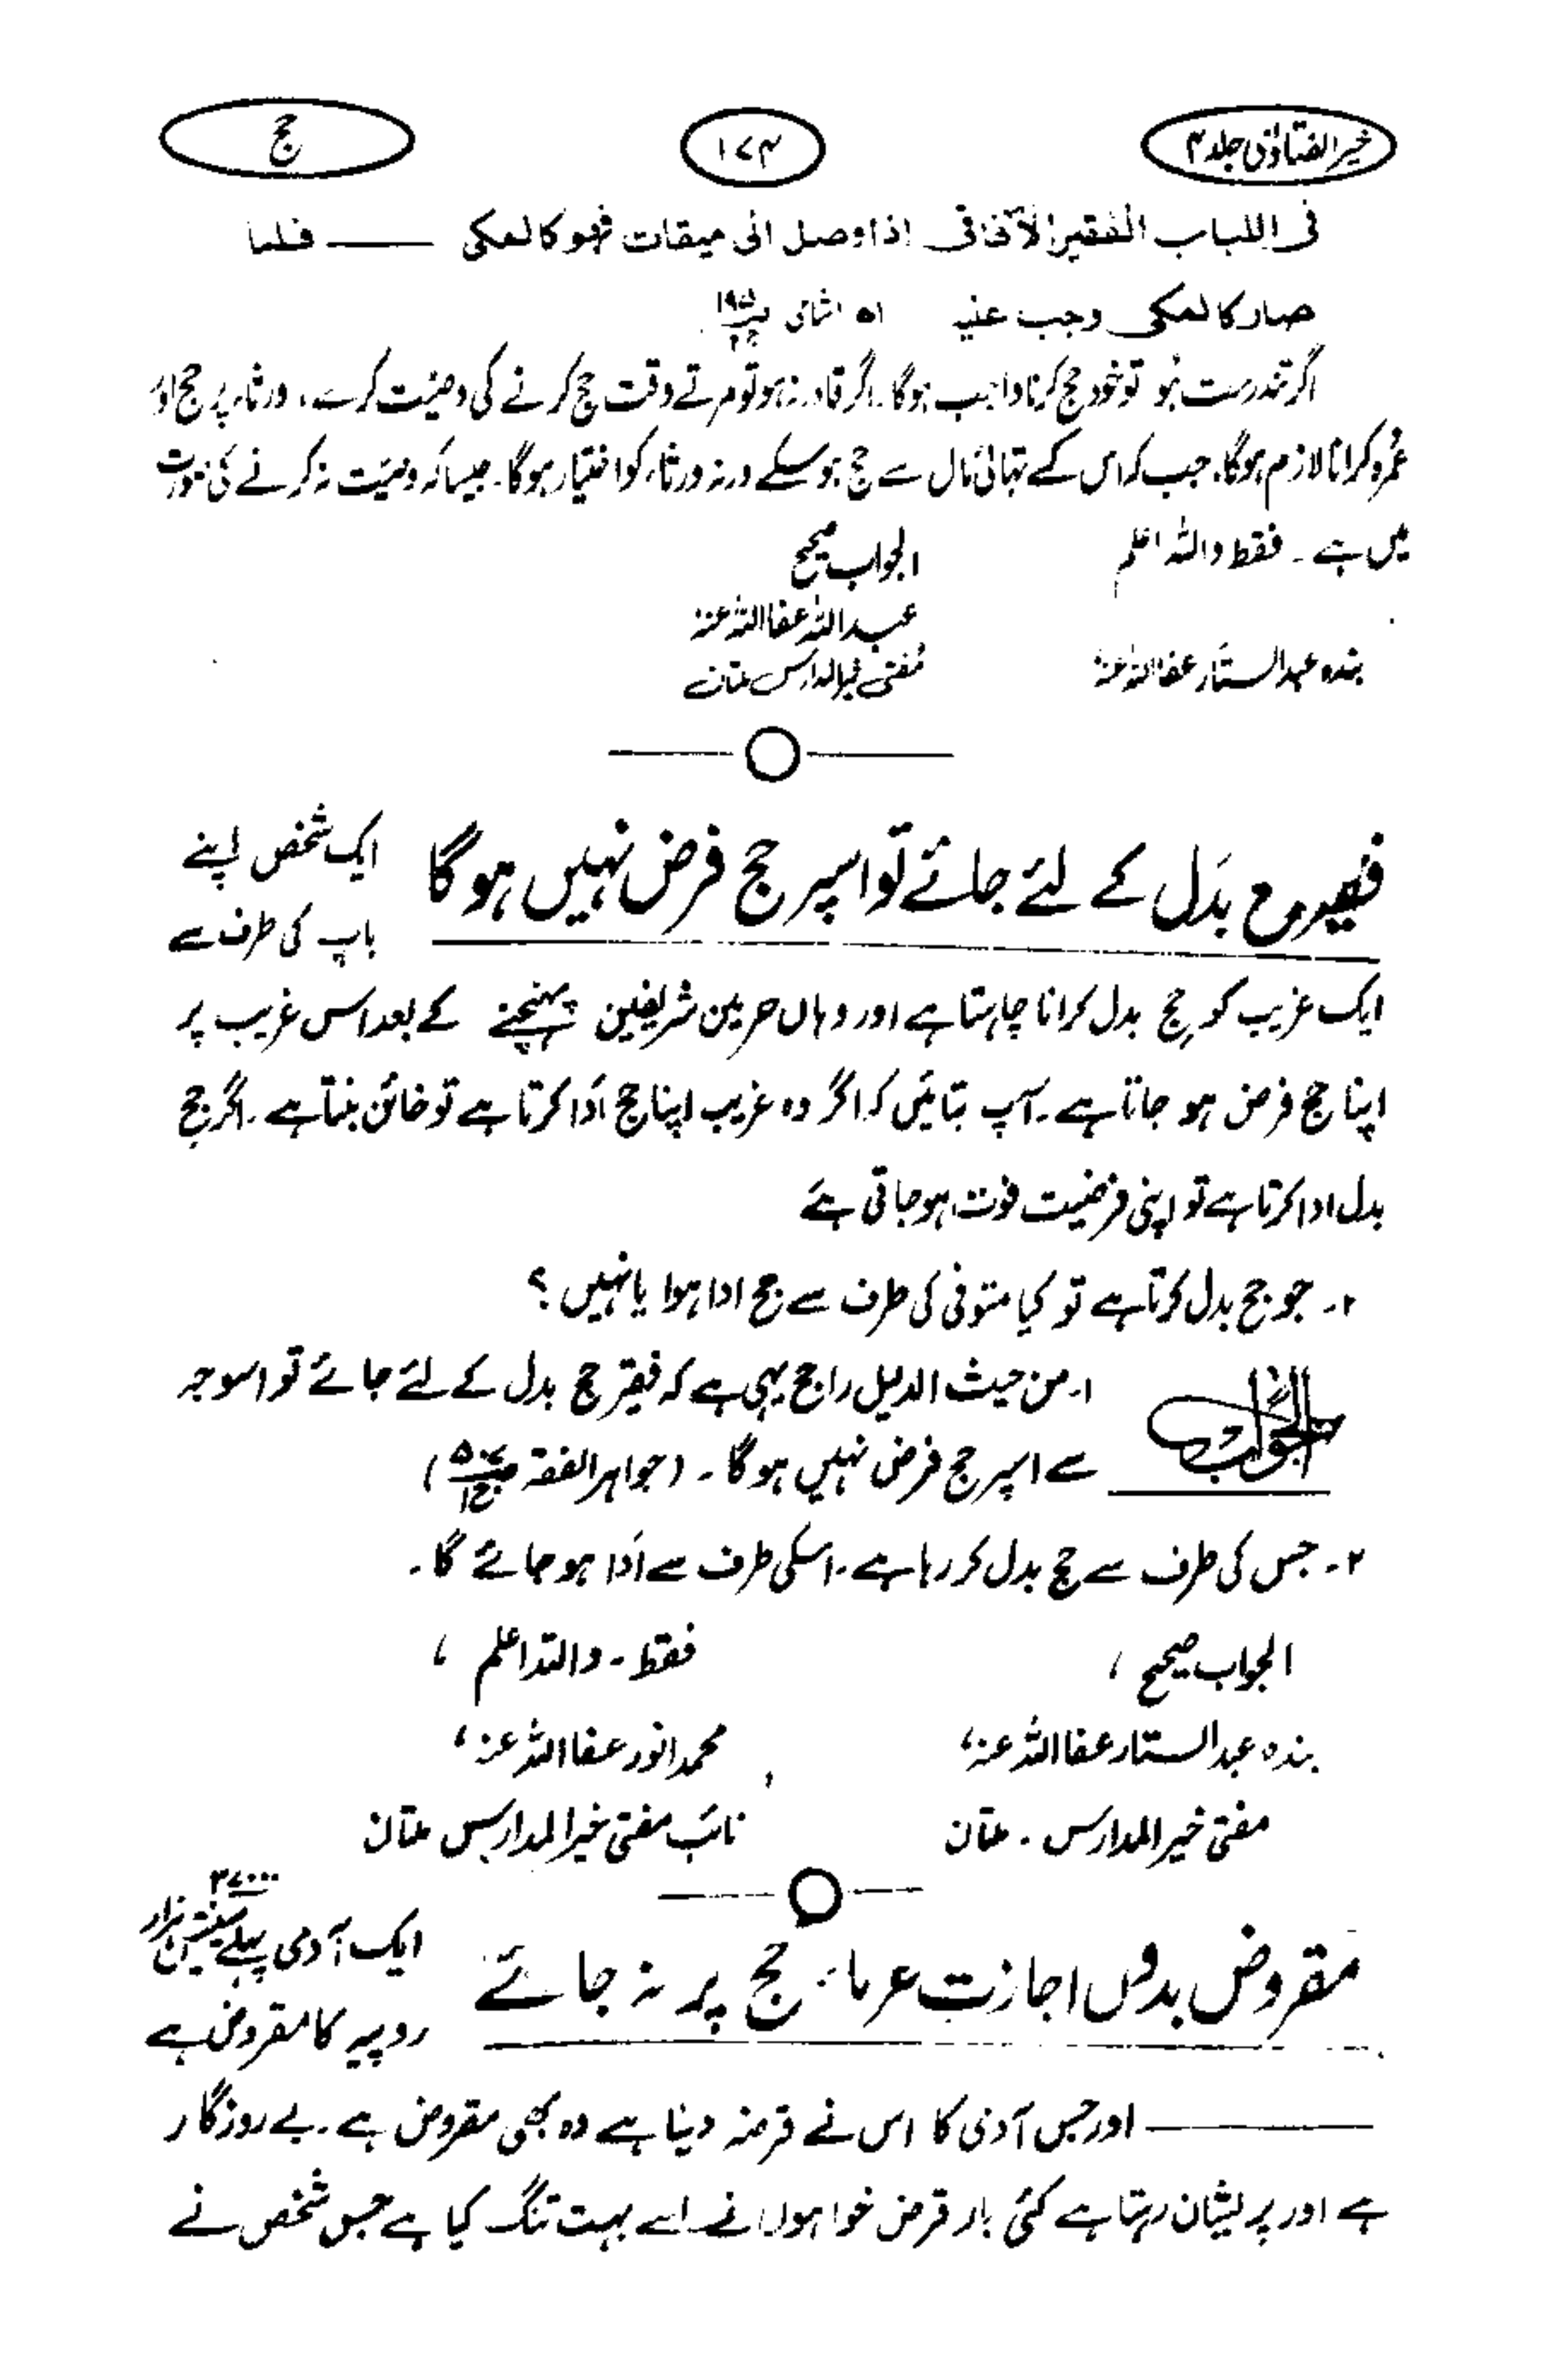 خیر الفتاویٰ جلد ۴
۱۷۴
حج
فی اللباب الفقیر الآفاقی اذا وصل الی میقات فهو کالمکی —— فلما
صار کالمکی وجب علیہ اھ شامی
اگر تندرست ہو تو خود حج کرنا واجب ہوگا۔ اگر قادر نہ ہو تو مرتے وقت حج کرنے کی وصیّت کرے، ورثاء پر حج اور
عمرہ کرانا لازم ہوگا۔ جب کہ اس کے تہائی مال سے حج ہو سکے ورنہ ورثاء کو اختیار ہوگا۔ جیسا کہ وصیّت نہ کرنے کی صورت
میں ہے۔ فقط واللہ اعلم
الجواب صحیح
عبداللہ عفا اللہ عنہ
بندہ عبدالستار عفا اللہ عنہ
مفتی خیر المدارس ملتان
فقیر حج بدَل کے لئے جائے تو اسپر حج فرض نہیں ہو گا
ایک شخص اپنے
باپ کی طرف سے
ایک غریب کو حج بدل کرانا چاہتا ہے اور وہاں حرمین شریفین پہنچنے کے بعد اس غریب پر
اپنا حج فرض ہو جاتا ہے۔ آپ بتائیں کہ اگر وہ غریب اپنا حج ادا کرتا ہے تو خائن بنتا ہے۔ اگر حج
بدل ادا کرتا ہے تو اپنی فرضیت فوت ہو جاتی ہے
۲۔ جو حج بدل کرتا ہے تو کیا متوفی کی طرف سے حج ادا ہوا یا نہیں؟
الجواب
۱۔ من حیث الدلیل راجح یہی ہے کہ فقیر حج بدل کے لئے جائے تو اسوجہ
سے اسپر حج فرض نہیں ہو گا۔ (جواہر الفقہ)
۲۔ جس کی طرف سے حج بدل کر رہا ہے۔ اسکی طرف سے ادا ہو جائے گا۔
الجواب صحیح،
فقط۔ واللہ اعلم،
بندہ عبدالستار عفا اللہ عنہ،
محمد انور عفا اللہ عنہ،
مفتی خیر المدارس۔ ملتان
نائب مفتی خیر المدارس ملتان
مقروض بدوں اجازت غرماء حج پر نہ جائے
۳۷۰۰۰
ایک آدمی پہلے سینتیس ہزار
روپیہ کا مقروض ہے
—— اور جس آدمی کا اس نے قرضہ دینا ہے وہ بھی مقروض ہے۔ بے روزگار
ہے اور پریشان رہتا ہے کئی بار قرض خواہوں نے اسے بہت تنگ کیا ہے جس شخص نے